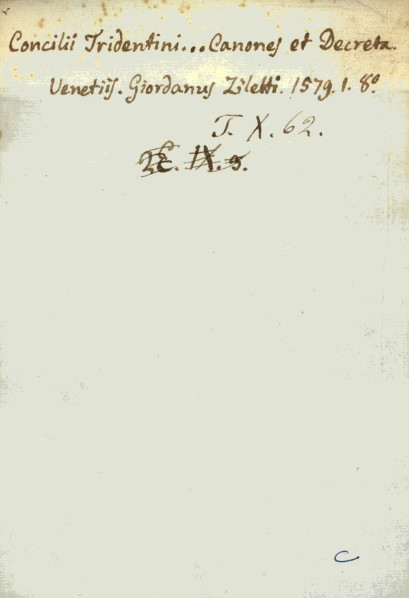 Concilii Tridentini... Canones et Decreta.
Venetiis. Giordanus Ziletti. 1579. 1. 8º.
T. X. 62.
IX. 5.
C